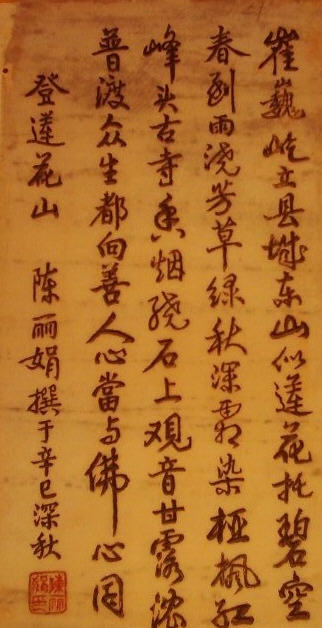 崔巍屹立县城东山似莲花托碧空
春到雨浇芳草绿秋深霜染桠枫红
峰头古寺香烟绕石上观音甘露浓
普渡众生都向善人心當与佛心同
登莲花山 陈丽娟撰于辛巳深秋